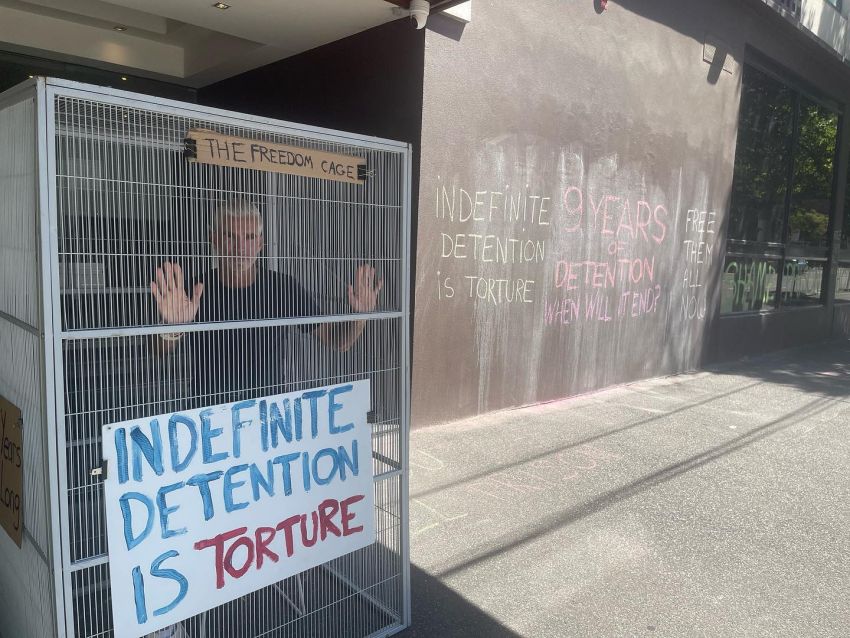 THE FREEDOM CAGE
INDEFINITE
DETENTION
IS TORTURE
Years
Long
INDEFINITE
DETENTION
IS TORTURE
9 YEARS
OF
DETENTION
WHEN WILL IT END?
FREE
THEM
ALL
NOW
SHAME